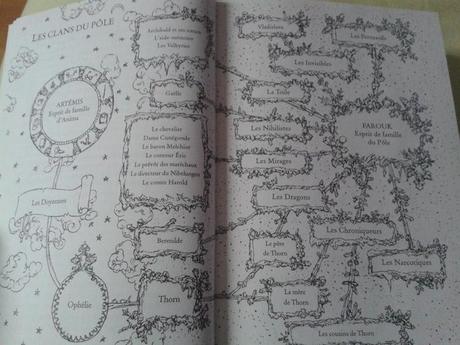 LES CLANS DU PÔLE
ARTÉMIS
Esprit de famille
d'Anima
Les Doyennes
Ophélie
Archibald et ses sœurs
Les Valkyries
Gaëlle
Le chevalier
Dame Cunégonde
Le baron Melchior
Le conteur Éric
Le prévôt des maréchaux
Le directeur du Nibelungen
Le comte Harold
Berenilde
Thorn
Vladislava
Les Invisibles
La Toile
Les Nihilistes
Les Mirages
Les Dragons
Le père
de Thorn
La mère
de Thorn
Les cousins de Thorn
FAROUK
Esprit de famille
du Pôle
Les Chroniqueurs
Les Narcotiques